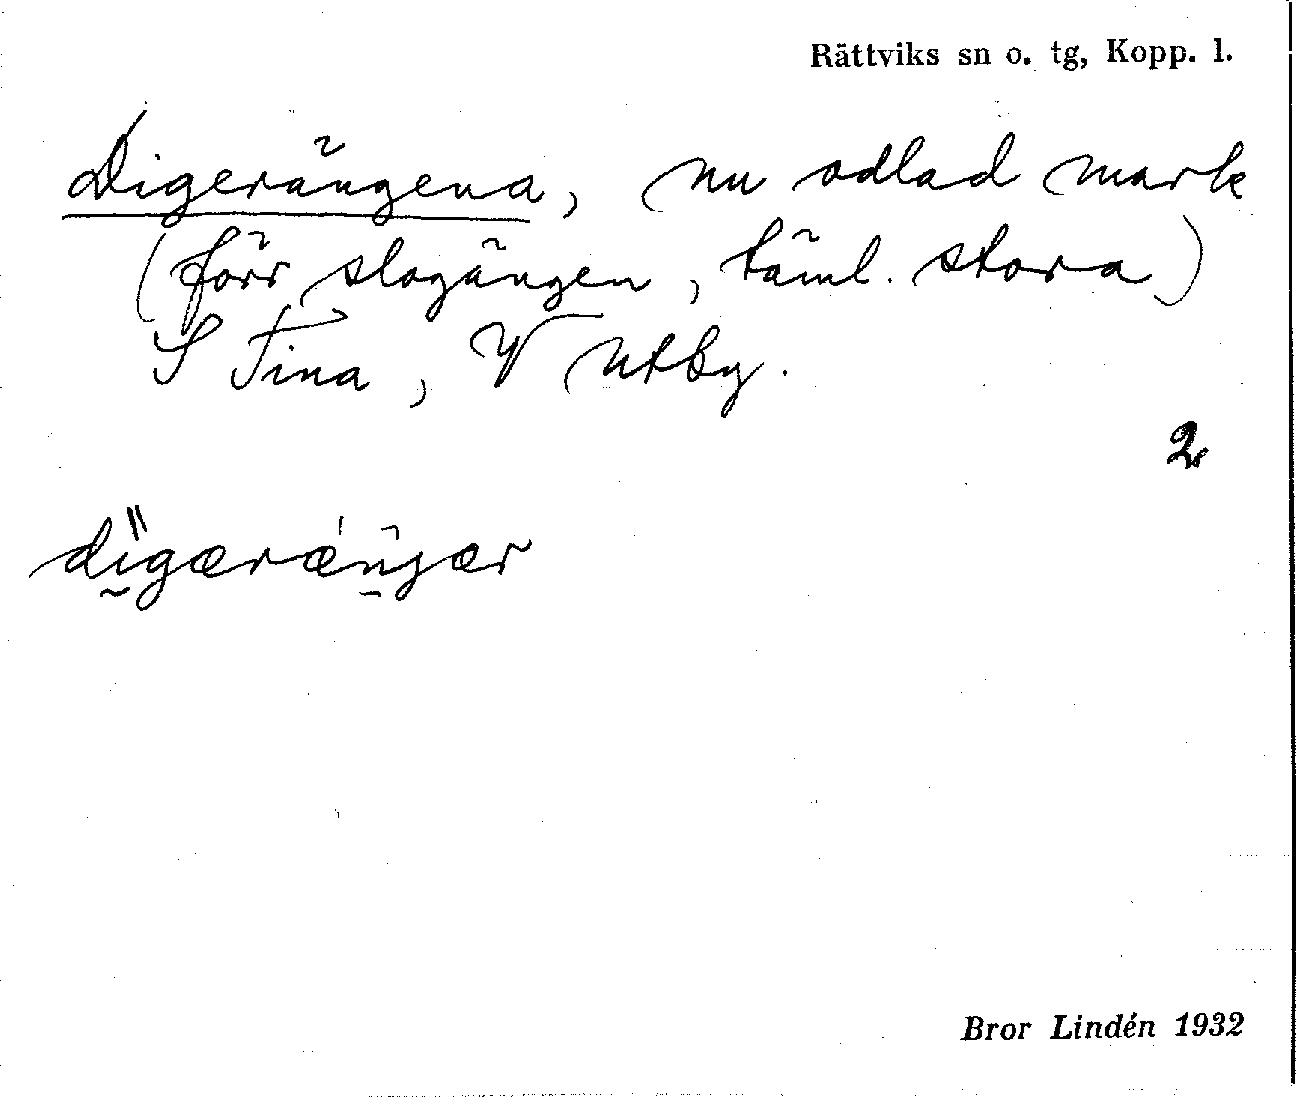 Rättviks sn o. tg, Kopp. l.
Digerängena, nu odlad mark
(förr slogängen, täml. stora)
S Fina, V Utby.
2
digærængær
Bror Lindén 1932